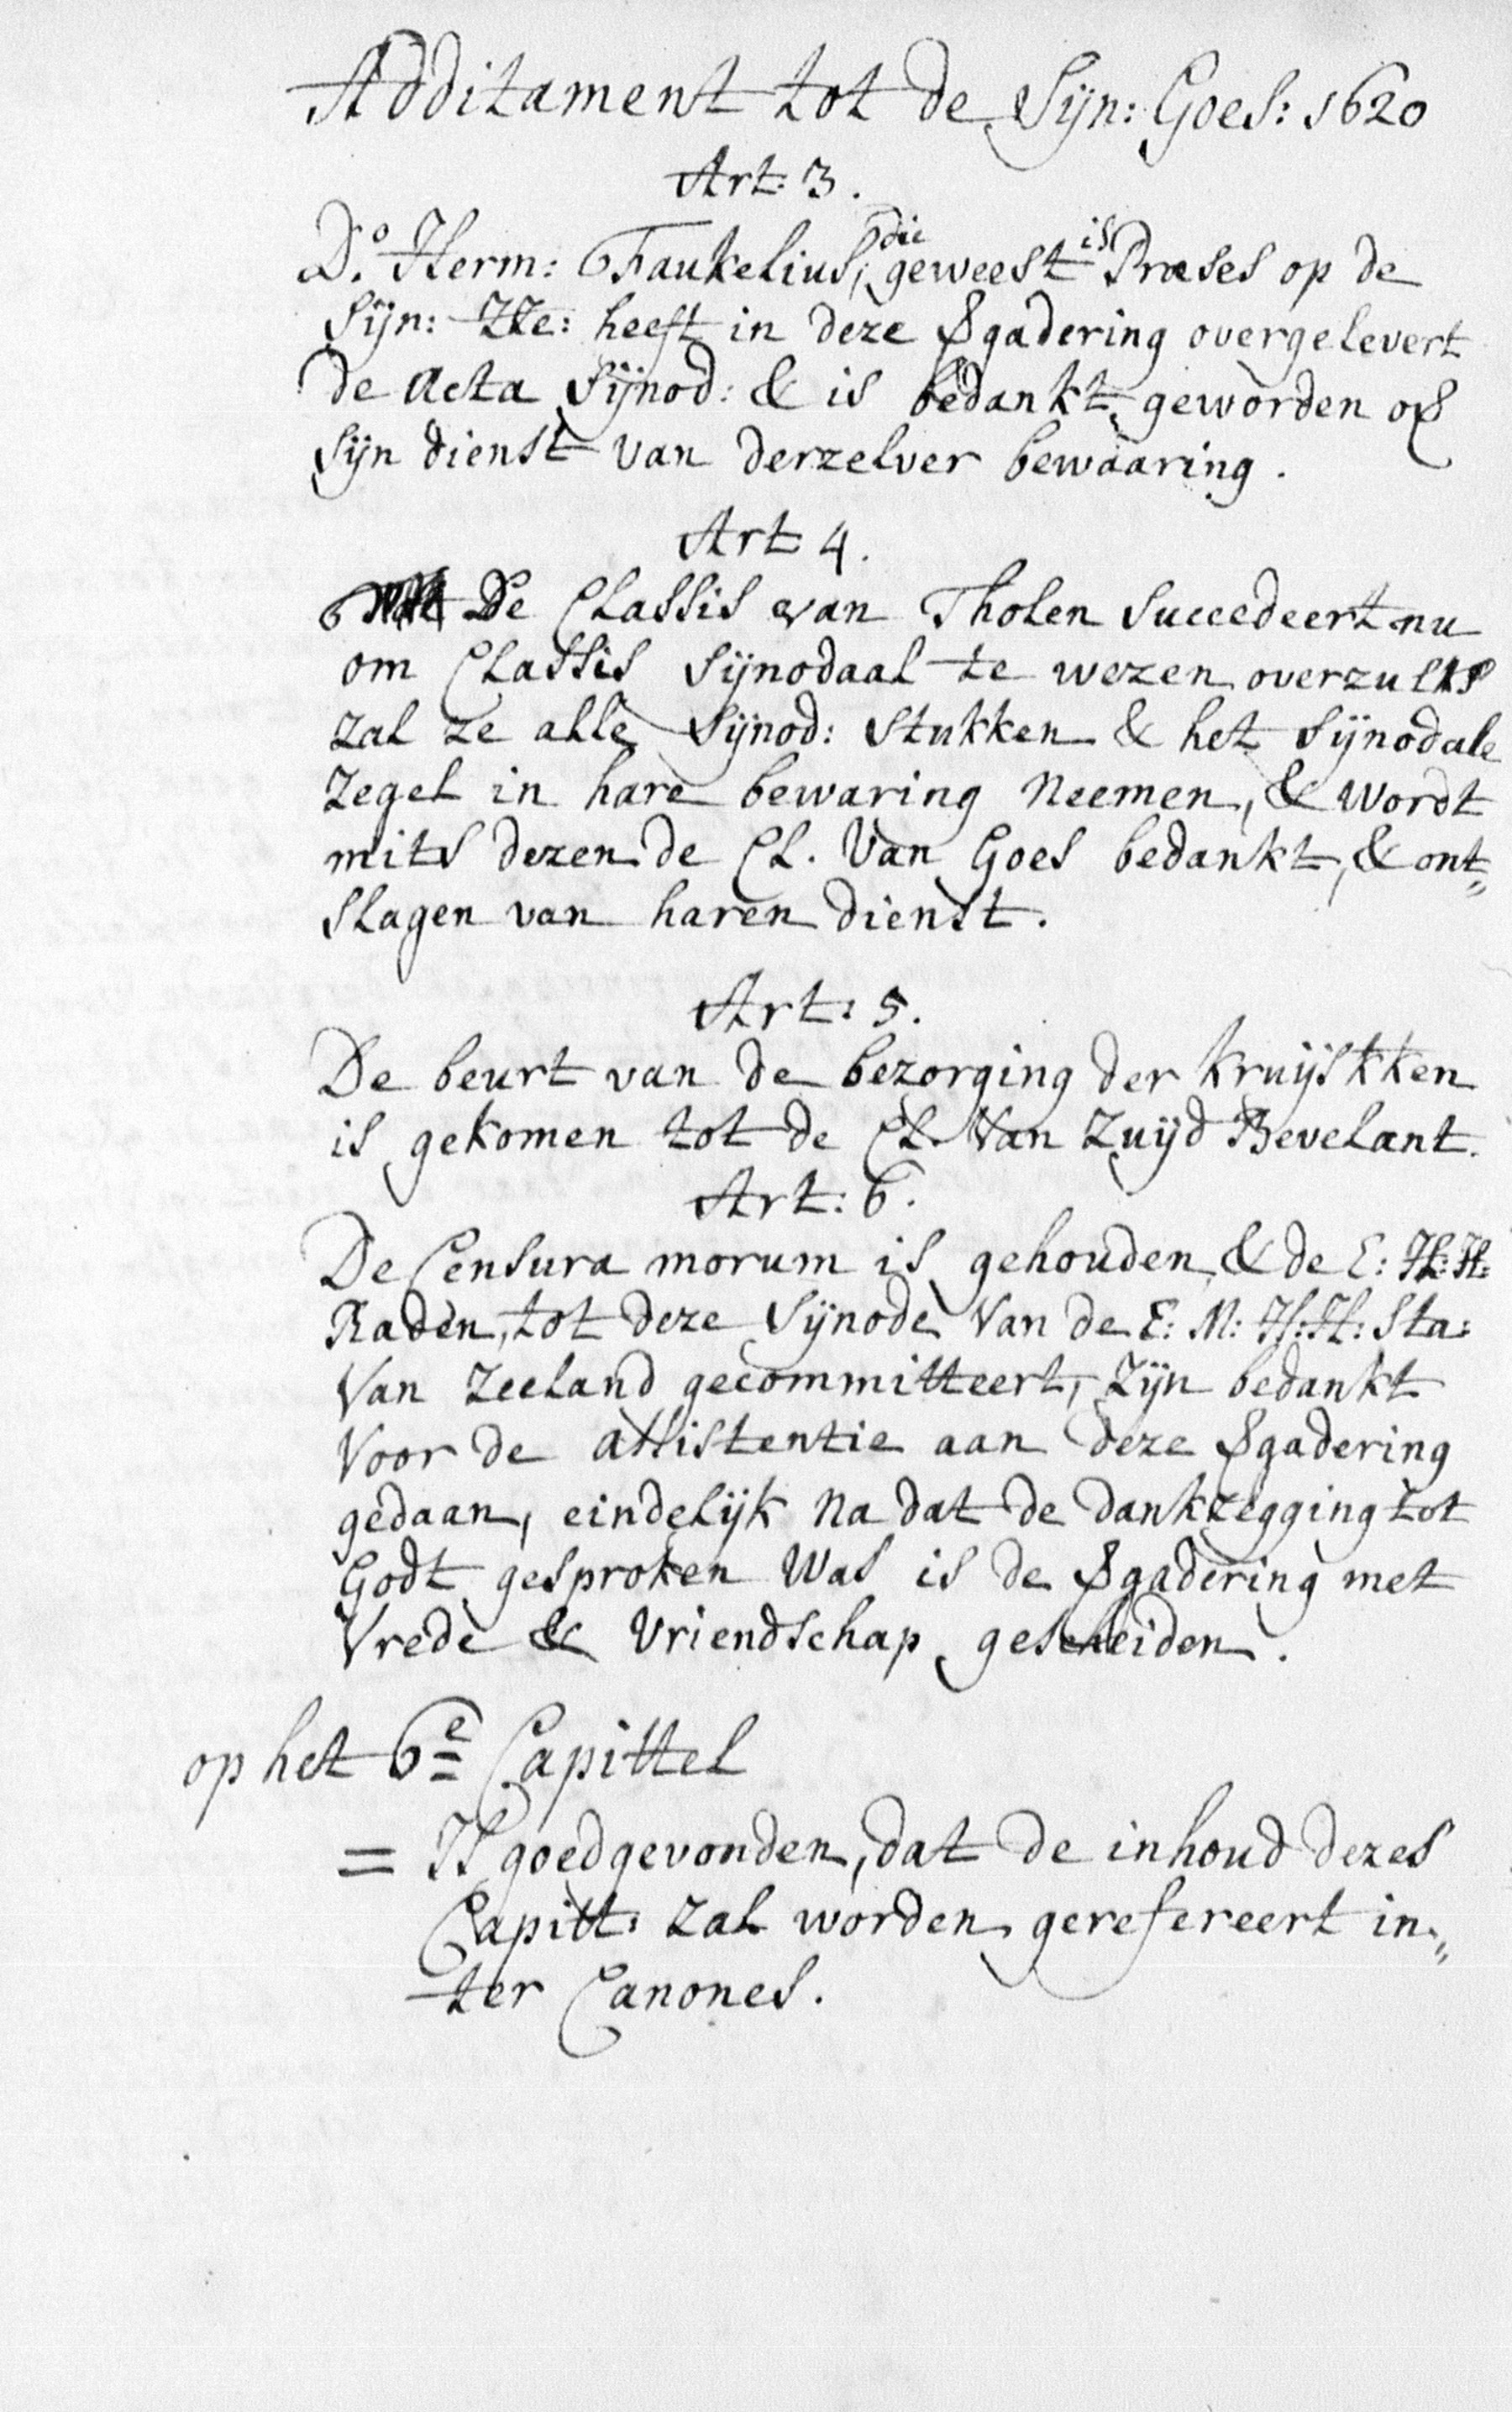 Additament tot de Sijn: Goes: 1620
Art: 3.
D.o Herm: Faukelius, die geweest is Præses op de
Sijn: Zze: heeft in deze vgadering overgelevert
de Acta Sijnod: & is bedankt geworden ov
sijn dienst van derzelver bewaaring.
Art 4.
De Classis van Tholen succedeert nu
om Classis Sijnodaal te wezen overzulks
zal ze alle Sijnod: stukken & het Sijnodale
Zegel in hare bewaring Neemen, & wordt
mits dezen de Cl. van Goes bedankt, & ont„
slagen van haren dienst.
Art: 5.
De beurt van de bezorging der kruijskken
is gekomen tot de Cl. van Zuijd Bevelant.
Art: 6.
De Censura morum is gehouden, & de E: H: H:
Raden, tot deze Sijnode van de E: M: H: H: Sta:
van Zeeland gecommitteert, zijn bedankt
voor de assistentie aan deze vgadering
gedaan, eindelijk na dat de dankzegging tot
Godt gesproken was is de vgadering met
vrede & vriendschap gescheiden.
op het 6e Capittel
= Is goedgevonden, dat de inhoud dezes
Capitt: zal worden gerefereert in„
ter Canones.